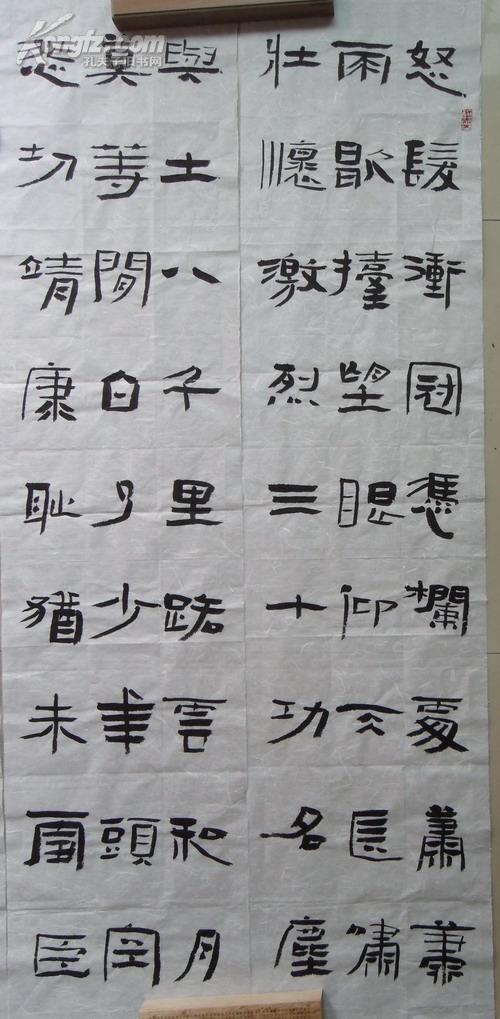 怒髮衝冠憑欄處蕭蕭
雨歇擡望眼仰天長嘯
壯懷激烈三十功名塵
與土八千里路雲和月
莫等閒白了少年頭空
悲切靖康耻猶未雪臣
Kongfz.com
孔夫子旧书网